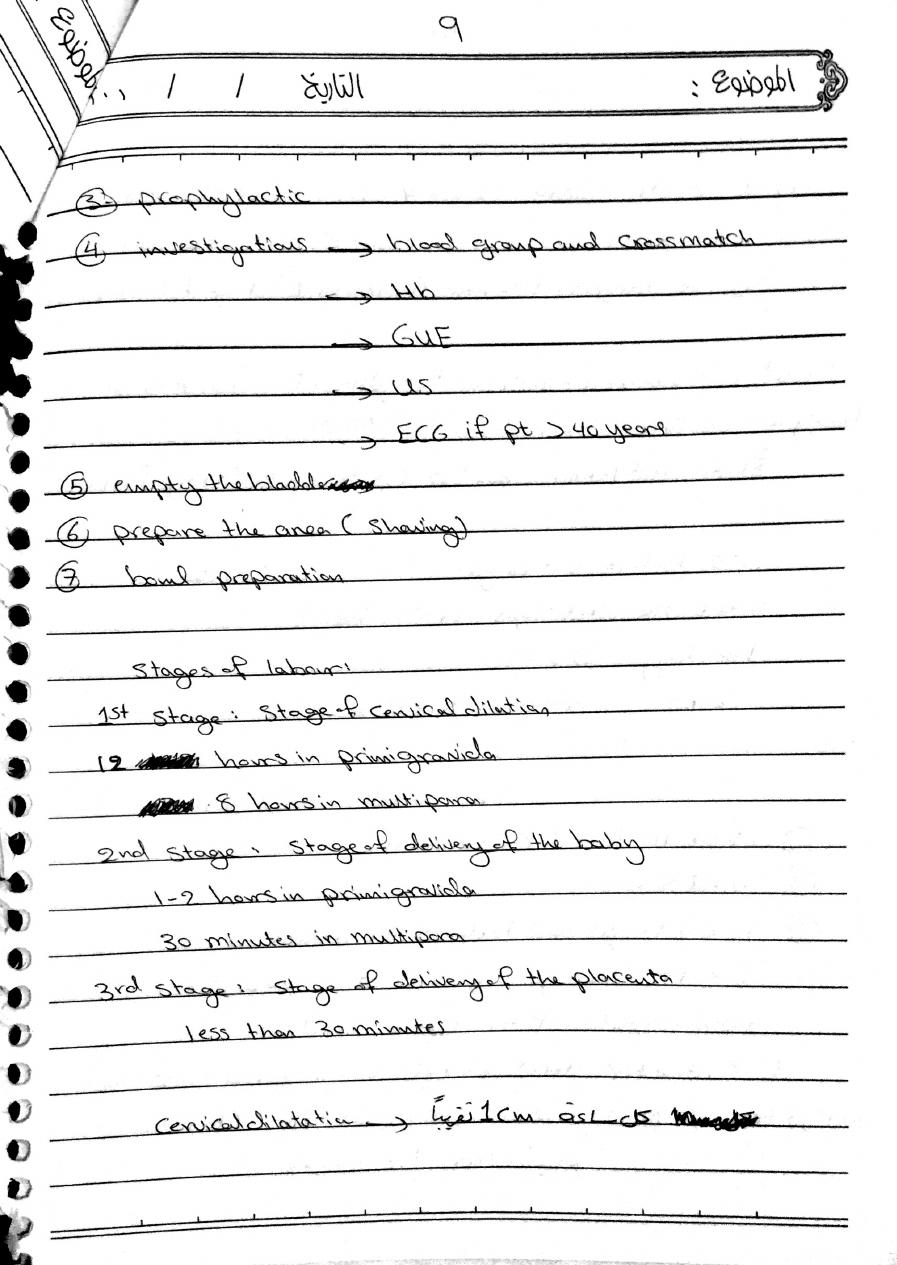 9
الموضوع : التاريخ / /
الموضوع
③ prophylactic
④ investigations → blood group and crossmatch
→ Hb
→ GUE
→ US
→ ECG if pt > 40 years
⑤ empty the bladder
⑥ prepare the area (Shaving)
⑦ bowl preparation
Stages of labour:
1st stage: stage of cervical dilation
12 hours in primigravida
8 hours in multipara
2nd stage: stage of delivery of the baby
1-2 hours in primigravida
30 minutes in multipara
3rd stage: stage of delivery of the placenta
less than 30 minutes
Cervical dilatation → كل ساعة 1cm تقريباً